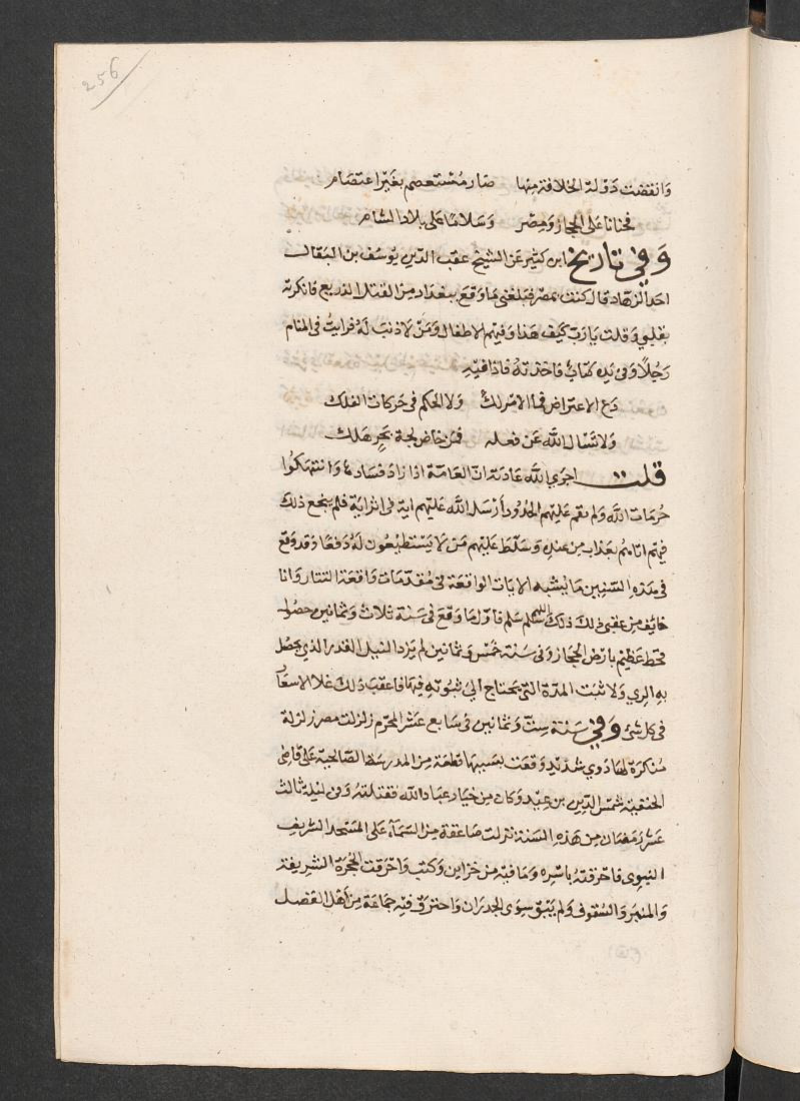 256
وَانقضت دَولة الخلافة منها صَار مُسْتعصم بغَير اعتصَام
فحنانا عَلى الحجاز وَمِصْر وَسَلامًا عَلى بلاد الشام
وَفي تاريخ ابن كثير عَن الشيخ عفيف الدّين يُوسُف بن البقال
احَد الزهّاد قال كنت بمصر فبلغني مَا وَقعَ ببغدَاد مِن القتل الذريع فانكرته
بقلبي وَقلت يَارَبّ كيف هَذا وَفيهم الاطفال وَمَن لا ذنبَ لَه فرايت في المنام
رَجُلًا وَفي يَده كتابٌ فاخذته فاذا فيْهِ
دَع الاعتراض فما الامر لك وَلا الحكم في حَركات الفلك
وَلا تسْال اللَّه عَن فعله فمن خاض لجة بَحرٍ هَلك
قلت اجرَي اللَّه عَادَته انّ العَامّة اذا زاد فسَادهَا وَانتهكوا
حُرمَات اللَّه وَلم تقم عَليْهم الحدُود أرْسَل اللَّه عَليْهم اية في اثر ايَة فلم ينجع ذلك
فيْهم اتاهُم بعَذاب مِن عندِه وَسَلّط عَليْهم مَن لَا يَسْتطيعُون لَهُ دَفعًا وَقد وَقعَ
في هَذه السّنيين مَا يُشبه الايات الواقعَة في مُقدّمَات وَاقعَة التتار وَانا
خائف من عقبى ذلك ذلك اللهم سلم سَلم فاوّل مَا وَقعَ في سَنة ثلاث وَثمانين حصُول
قحط عَظيْم بارْض الحجَاز وَفي سَنة خمس وَثمانين لم يَزد النيل القدر الذي يحصُل
بهِ الرِي وَلا ثبت المدّة التي يَحتاج اليَ ثبُوتهِ فيهَا فاعقبَ ذلك غلا الاسعَار
في كل شئ وَفي سَنة ستّ وَثمانين في سَابع عشَر المحَرّم زلزلت مصر زلزلة
مُنكرَة لهَا دَوي شدْيد وَقعَت بسَببهَا قطعَة مِن المدرسَة الصّالحية عَلى قاضي
الحنفيَة شمْس الدّين بن عيْد وَكان من خيَار عبَاد اللَّه فقتلتهُ وَفي ليْلة ثالث
عشر رَمضان مِن هَذِه السّنة نزلت صَاعقة مِن السّمَآءِ عَلى المَسْجد الشريف
النبوي فاحْرَقتهُ باسْره وَمَا فيْه من خزاين وَكتب وَاحْرَقت الحُجرَة الشريفة
وَالمنبَر وَالسّقوف وَلم يَبْق سِوَى الجدرَان وَاحترق فيْه جمَاعَة مِن أهْل الفضل